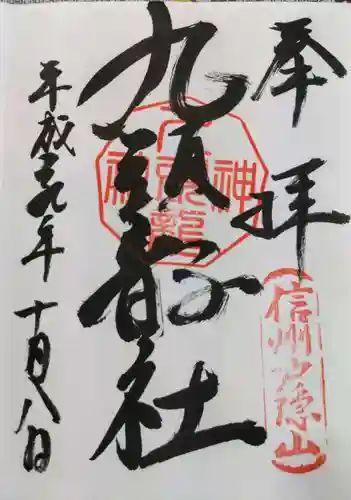 奉拝
信州戸隠山
九頭龍社
九頭龍神社
平成二九年
十月八日